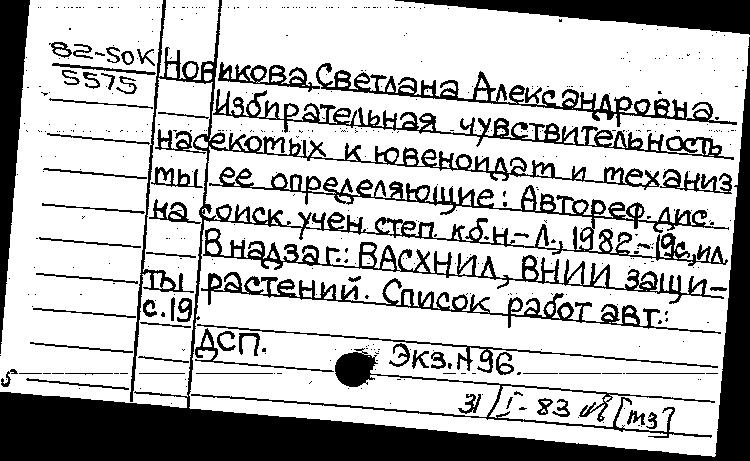 82-5ок Новикова, Светлана Александровна.
5575
Избирательная чувствительность
насекотых к ювеноидат и техaниз-
ты ее определяющие: Автореф. дис.
на соиск. учен. степ. к.б.н. - Л., 1982. - 19с., ил.
В надзаг.: ВАСХНИЛ, ВНИИ защи-
ты растений. Список работ авт.:
с.19.
ДСП. Экз. N96.
31/I-83 [тз]
5